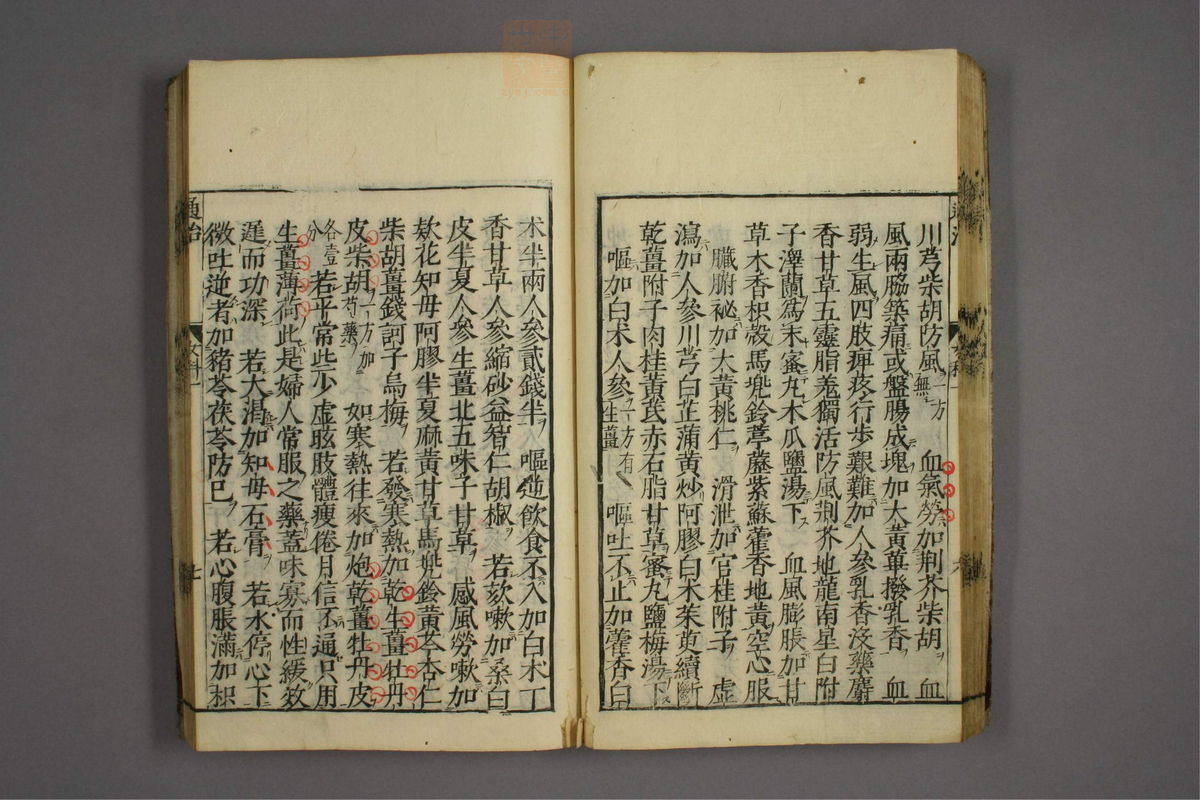 川芎柴胡防風一方無 血氣勞加荆芥柴胡 血
風兩脇築痛或盤腸成塊加大黄蓽撥乳香 血
弱生風四肢痺疼行步艱難加人參乳香沒藥麝
香甘草五靈脂羗獨活防風荆芥地龍南星白附
子澤蘭爲末蜜丸木瓜鹽湯下 血風膨脹加甘
草木香枳殻馬兠鈴葶藶紫蘇藿香地黄空心服
臟腑祕加大黄桃仁 滑泄加官桂附子 虚
瀉加人參川芎白芷蒲黄炒阿膠白术茱萸續斷
乾薑附子肉桂黄芪赤石脂甘草蜜丸鹽梅湯下
嘔加白术人參一方有生薑 嘔吐不止加藿香白
术半兩人參貳錢半 嘔逆飲食不入加白术丁
香甘草人參縮砂益智仁胡椒 若欬嗽加桑白
皮半夏人參生薑北五味子甘草 感風勞嗽加
欵花知毋阿膠半夏麻黄甘草馬兠鈴黄芩杏仁
柴胡薑錢訶子烏梅 若發寒熱加乾生薑牡丹
皮柴胡一方加芍藥 如寒熱往來加炮乾薑牡丹皮
各壹分 若平常些少虚眩肢體瘦倦月信不通只用
生薑薄荷此是婦人常服之藥蓋味寡而性緩效
遲而功深 若大渴加知毋石膏 若水停心下
微吐逆者加豬苓茯苓防巳 若心腹脹滿加枳
通治
女科一
七